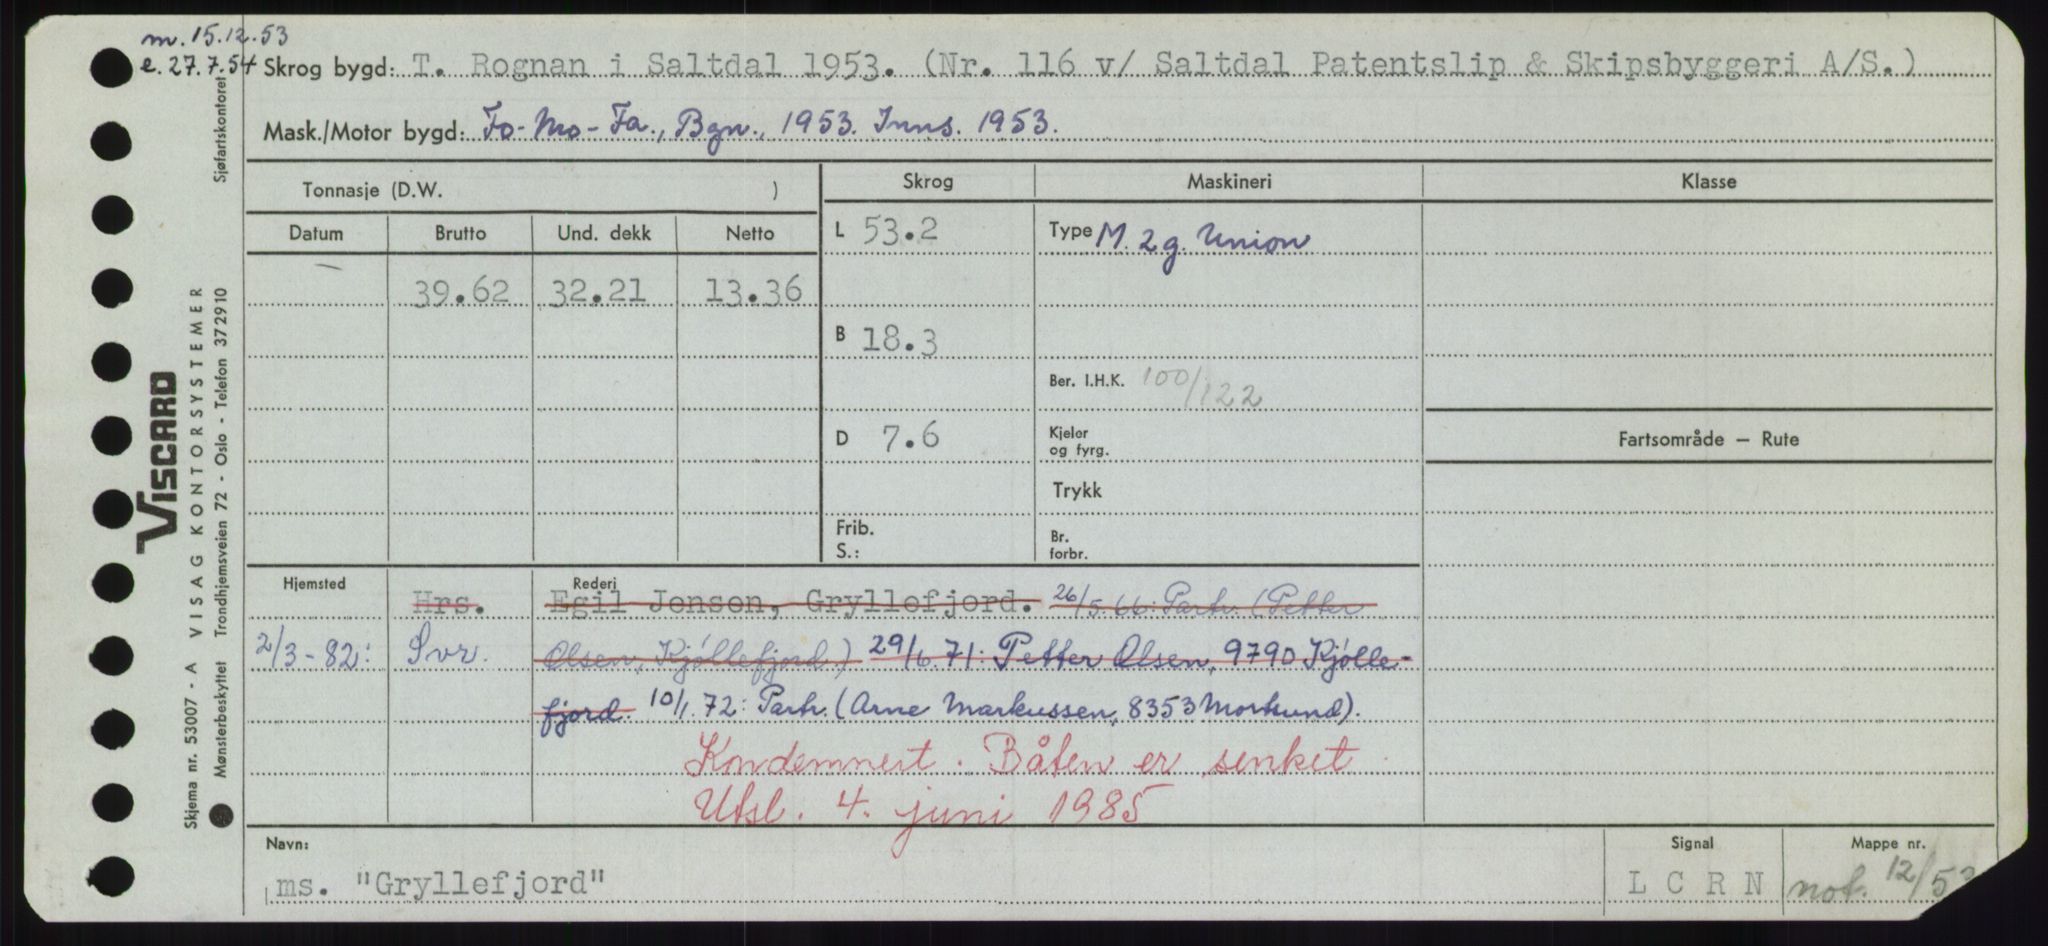 m. 15.12.53
e. 27.7.54
Skrog bygd: T. Rognan i Saltdal 1953. (Nr. 116 v/ Saltdal Patentslip & Skipsbyggeri A/S.)
Mask./Motor bygd: Fo-Mo-Fa., Bgn., 1953. Inns. 1953.
Tonnasje (D.W. )
Skrog
Maskineri
Klasse
Datum Brutto Und. dekk Netto
L 53.2
Type M. 2 g. Union
39.62 32.21 13.36
B 18.3
Ber. I.H.K. 100/122
D 7.6
Kjeler
og fyrg.
Fartsområde — Rute
Trykk
Frib.
S.:
Br.
forbr.
Hjemsted
Rederi
Hrs. Egil Jensen, Gryllefjord. 26/5.66: Partr. (Petter
2/3-82: Svr. Olsen, Kjøllefjord.) 29/6.71: Petter Olsen, 9790 Kjølle-
fjord. 10/1.72: Partr. (Arne Markussen, 8353 Mortsund).
Kondemnert. Båten er senket.
Utsl. 4. juni 1985
Navn:
ms. "Gryllefjord"
Signal
L C R N
Mappe nr.
not. 12/53
Sjøfartskontoret
VISCARD
VISAG KONTORSYSTEMER
Trondhjemsveien 72 - Oslo - Telefon 37 29 10
Skjema nr. 53007 - A
Mønsterbeskyttet